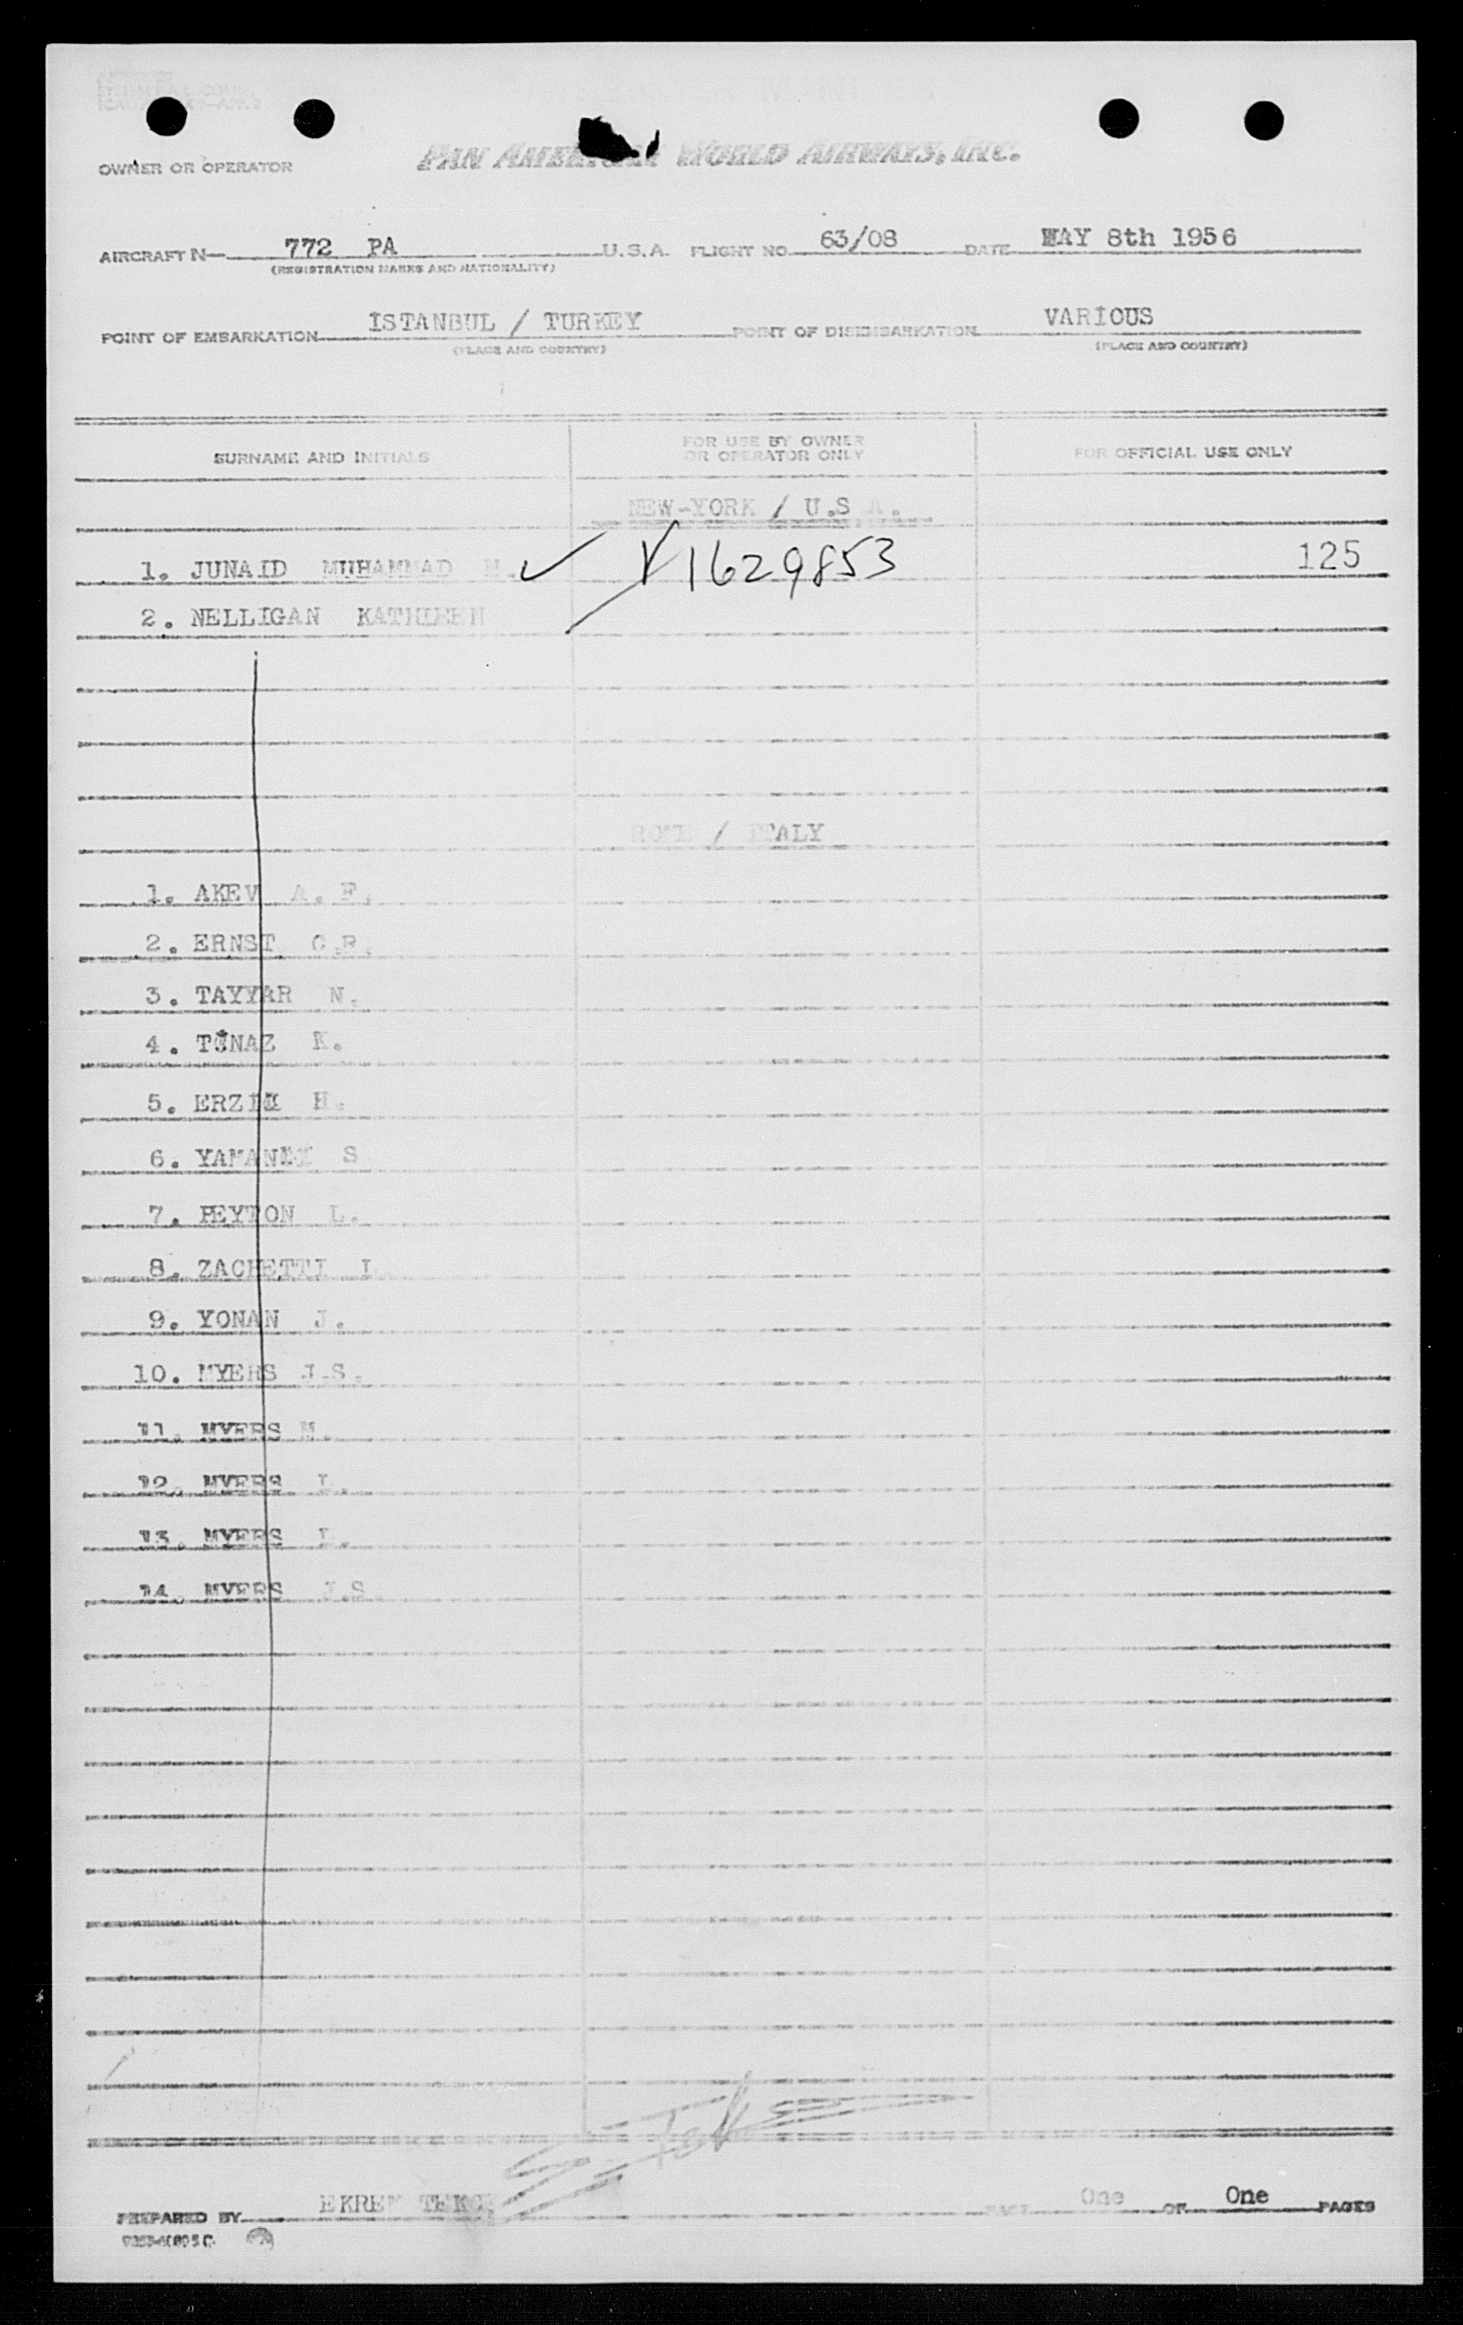 OWNER OR OPERATOR PAN AMERICAN WORLD AIRWAYS, INC.
AIRCRAFT N 772 PA U.S.A. FLIGHT NO. 63/08 DATE MAY 8th 1956
(REGISTRATION MARKS AND NATIONALITY)
POINT OF EMBARKATION ISTANBUL / TURKEY POINT OF DISEMBARKATION VARİOUS
(PLACE AND COUNTRY) (PLACE AND COUNTRY)
SURNAME AND INITIALS FOR USE BY OWNER OR OPERATOR ONLY FOR OFFICIAL USE ONLY
NEW-YORK / U.S.A.
1. JUNAID MUHAMMAD 1629853 125
2. NELLIGAN KATHLEEN
ROME / ITALY
1. AKEV A. F.
2. ERNST C.R.
3. TAYYAR N.
4. TÜNAZ K.
5. ERZIM H.
6. S
7. PEYTON L.
8. ZACHETTI I
9. YONAN J.
10. MYERS J.S.
11. MYERS M.
12. MYERS L.
13. MYERS L.
14. MYERS J.S.
PREPARED BY EKREM PAGE One OF One PAGES